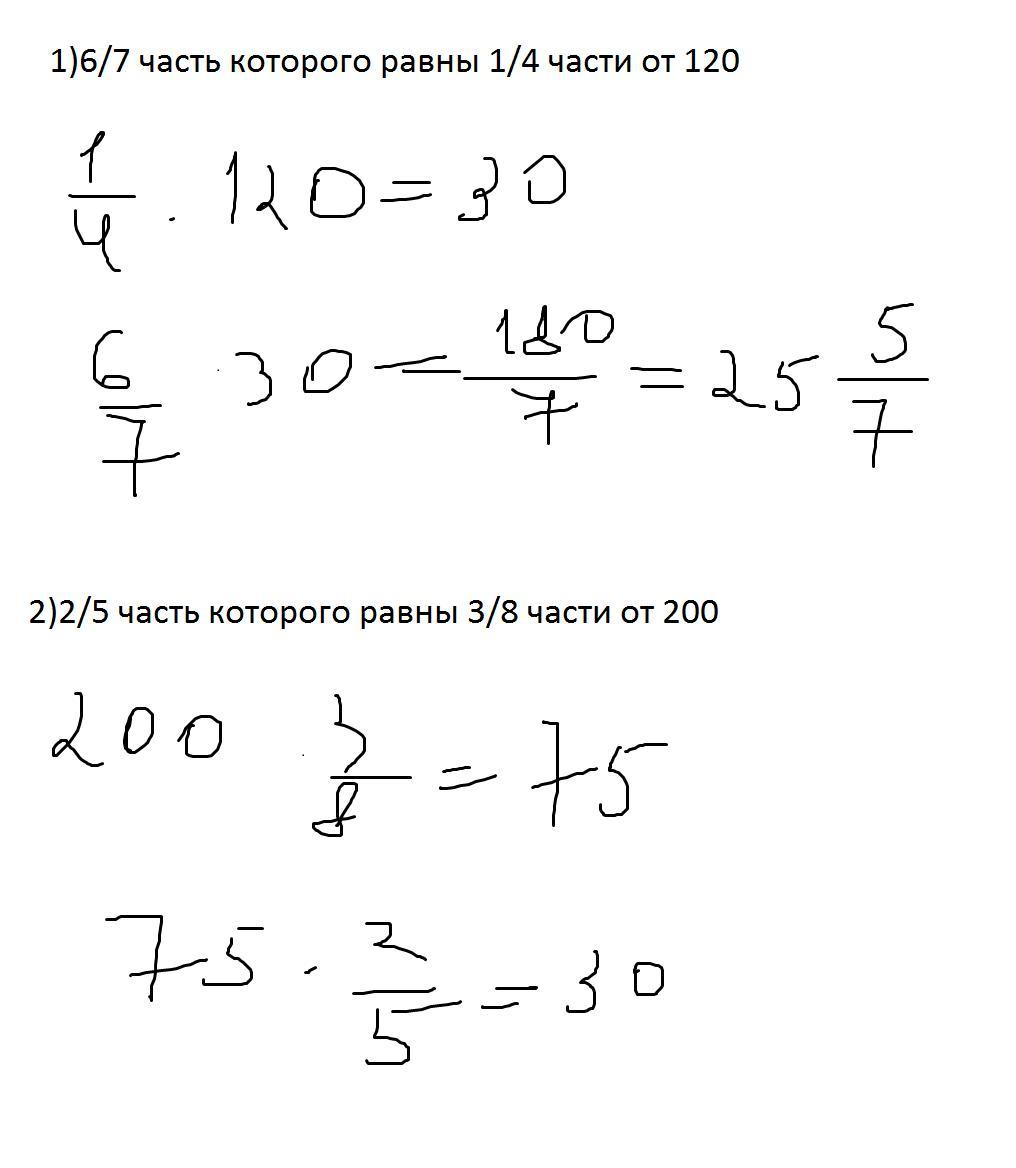 1)6/7 часть которого равны 1/4 части от 120
1/4 · 120 = 30
6/7 · 30 = 180/7 = 25 5/7
2)2/5 часть которого равны 3/8 части от 200
200 · 3/8 = 75
75 · 2/5 = 30